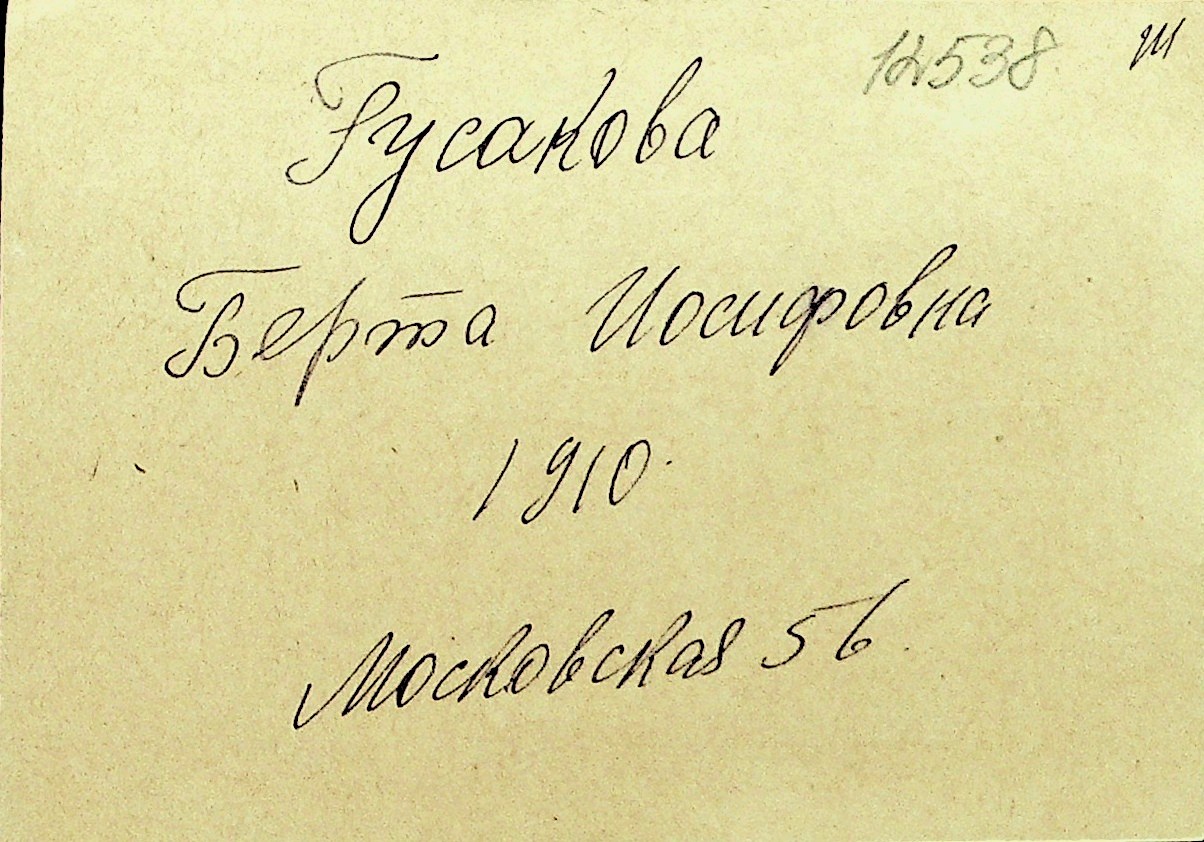 12538
Гусакова
Берта Иосифовна
1910
Московская 56